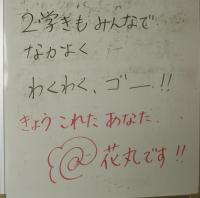 2学きも みんなで
なかよく
わくわく、ゴー!!
きょう これた あなた
花丸です!!